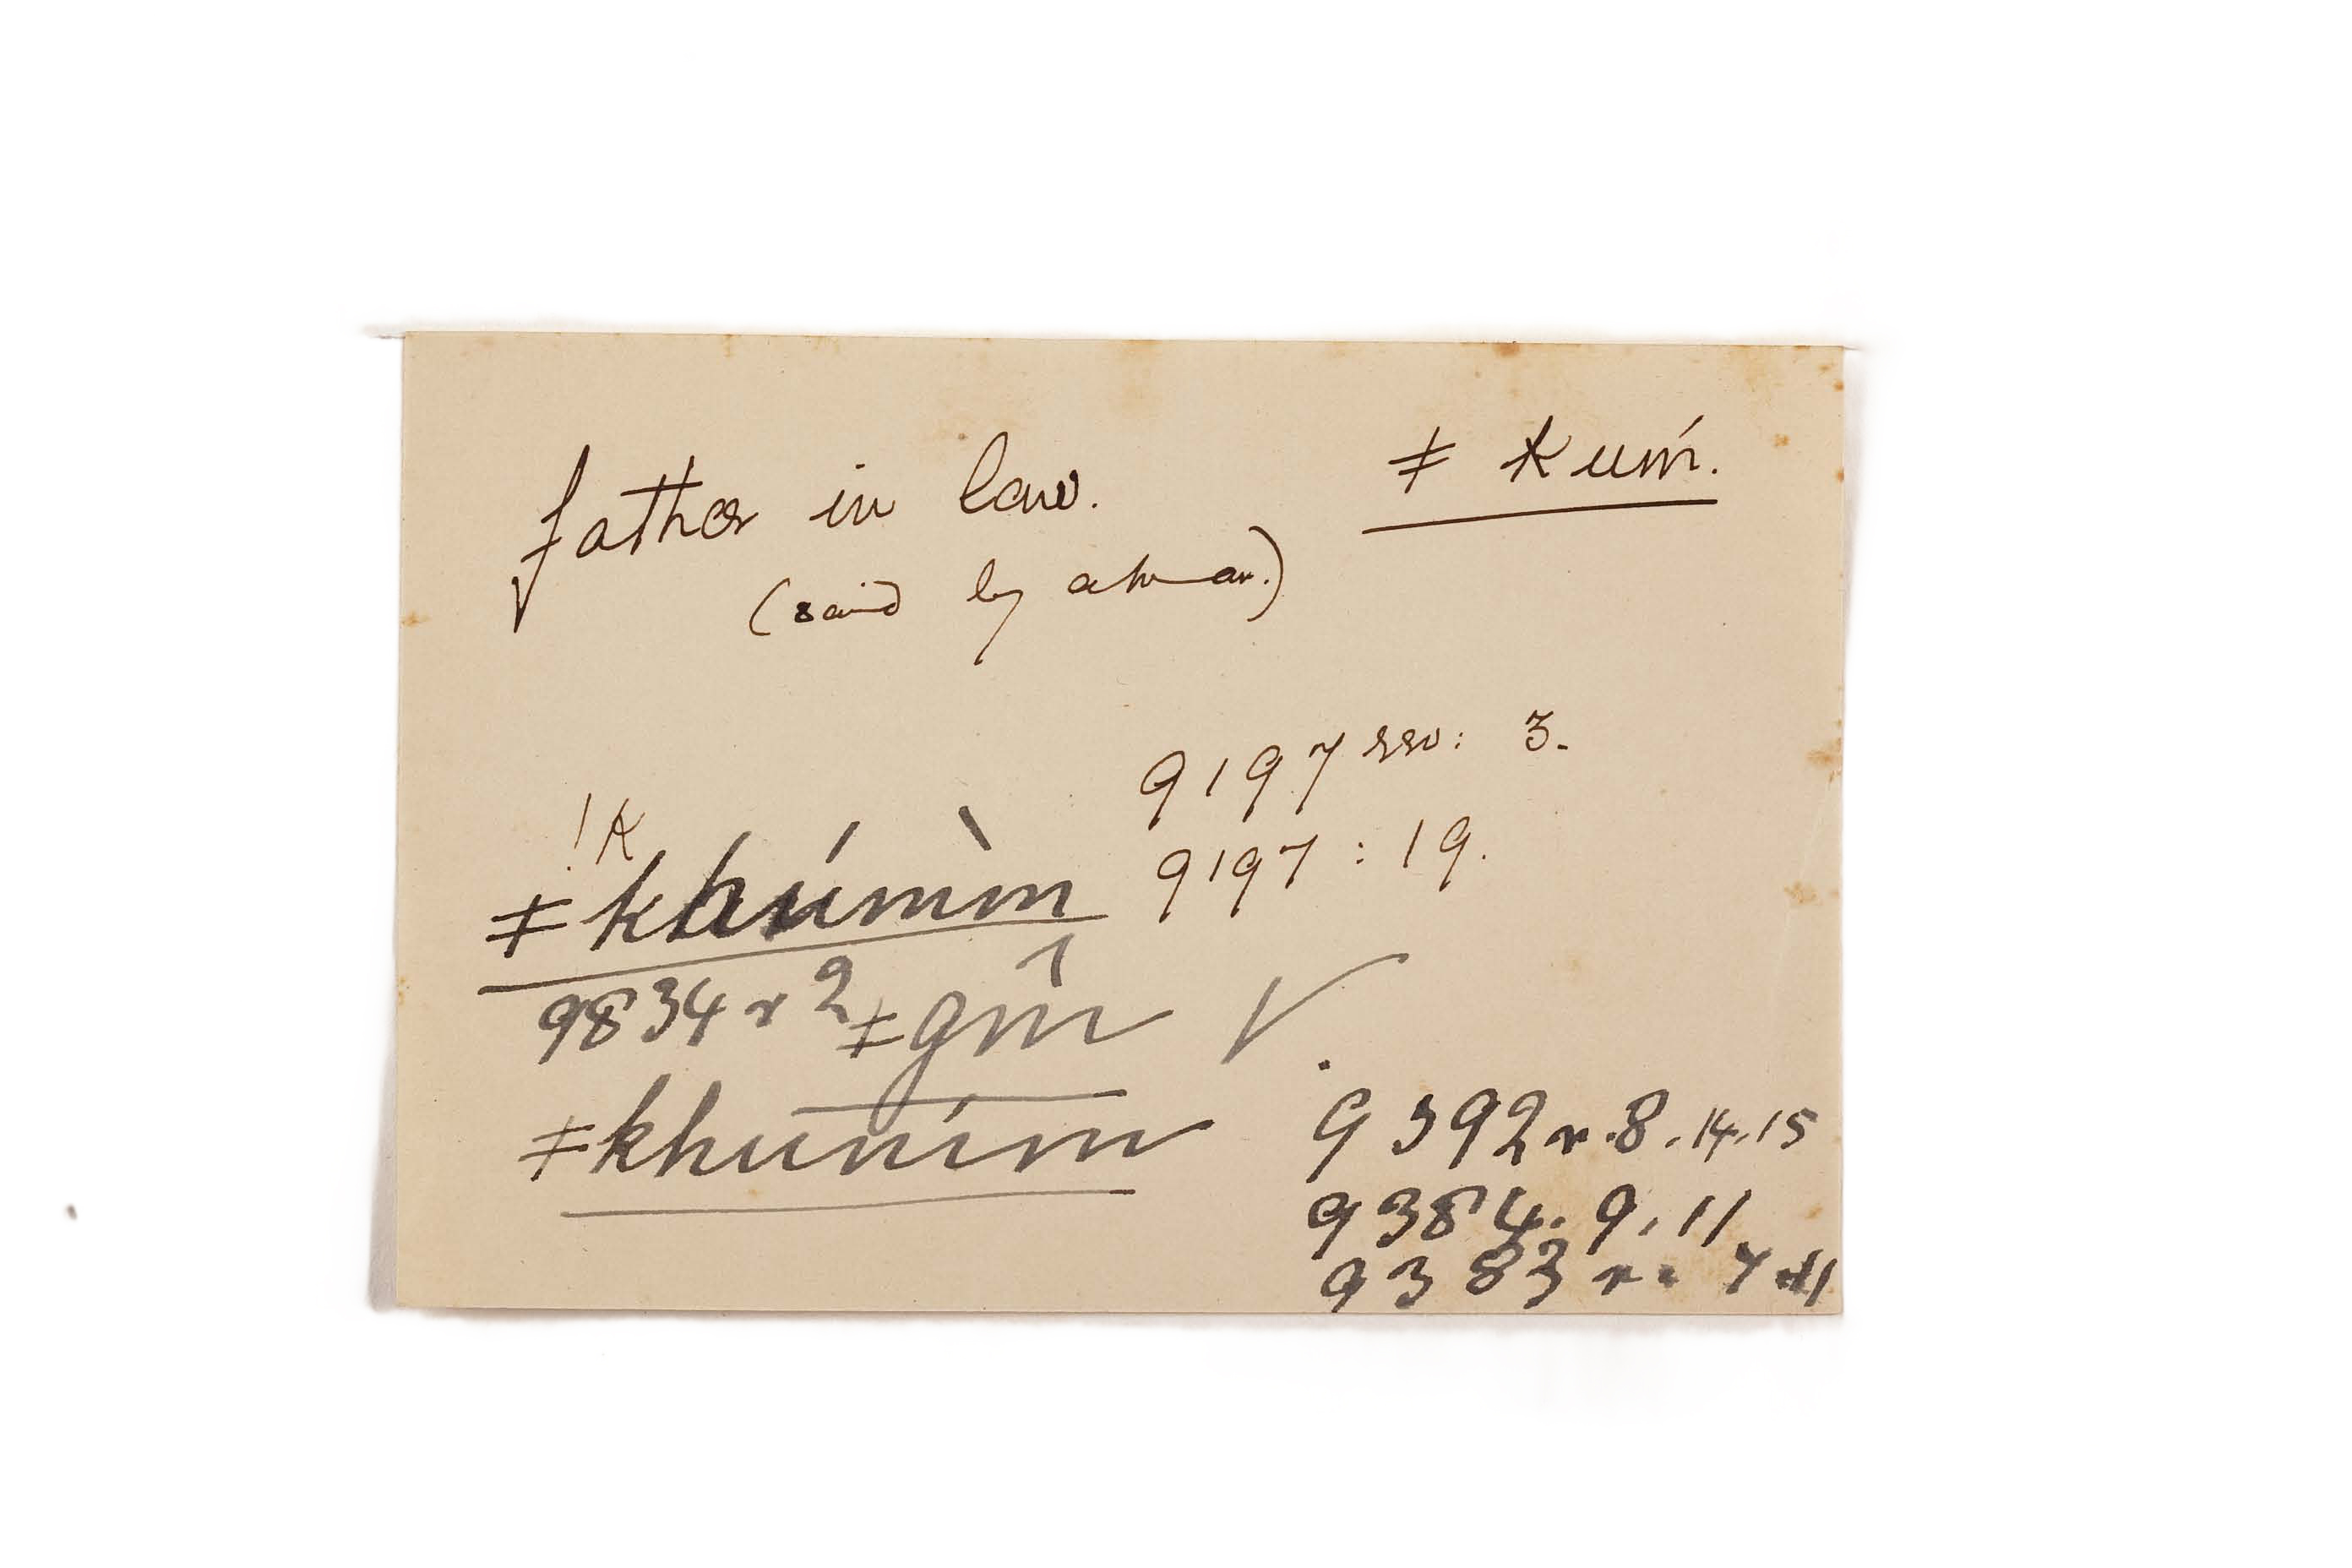 father in law. ǂ kuḿ.
(said by a man.)
9197 rev: 3.
9197 : 19.
!k
ǂkhúmm̀
9834 r 2 ǂgm̂ √
ǂkhuním
9392 r. 8. 14. 15
9384. 9. 11
9383 r.